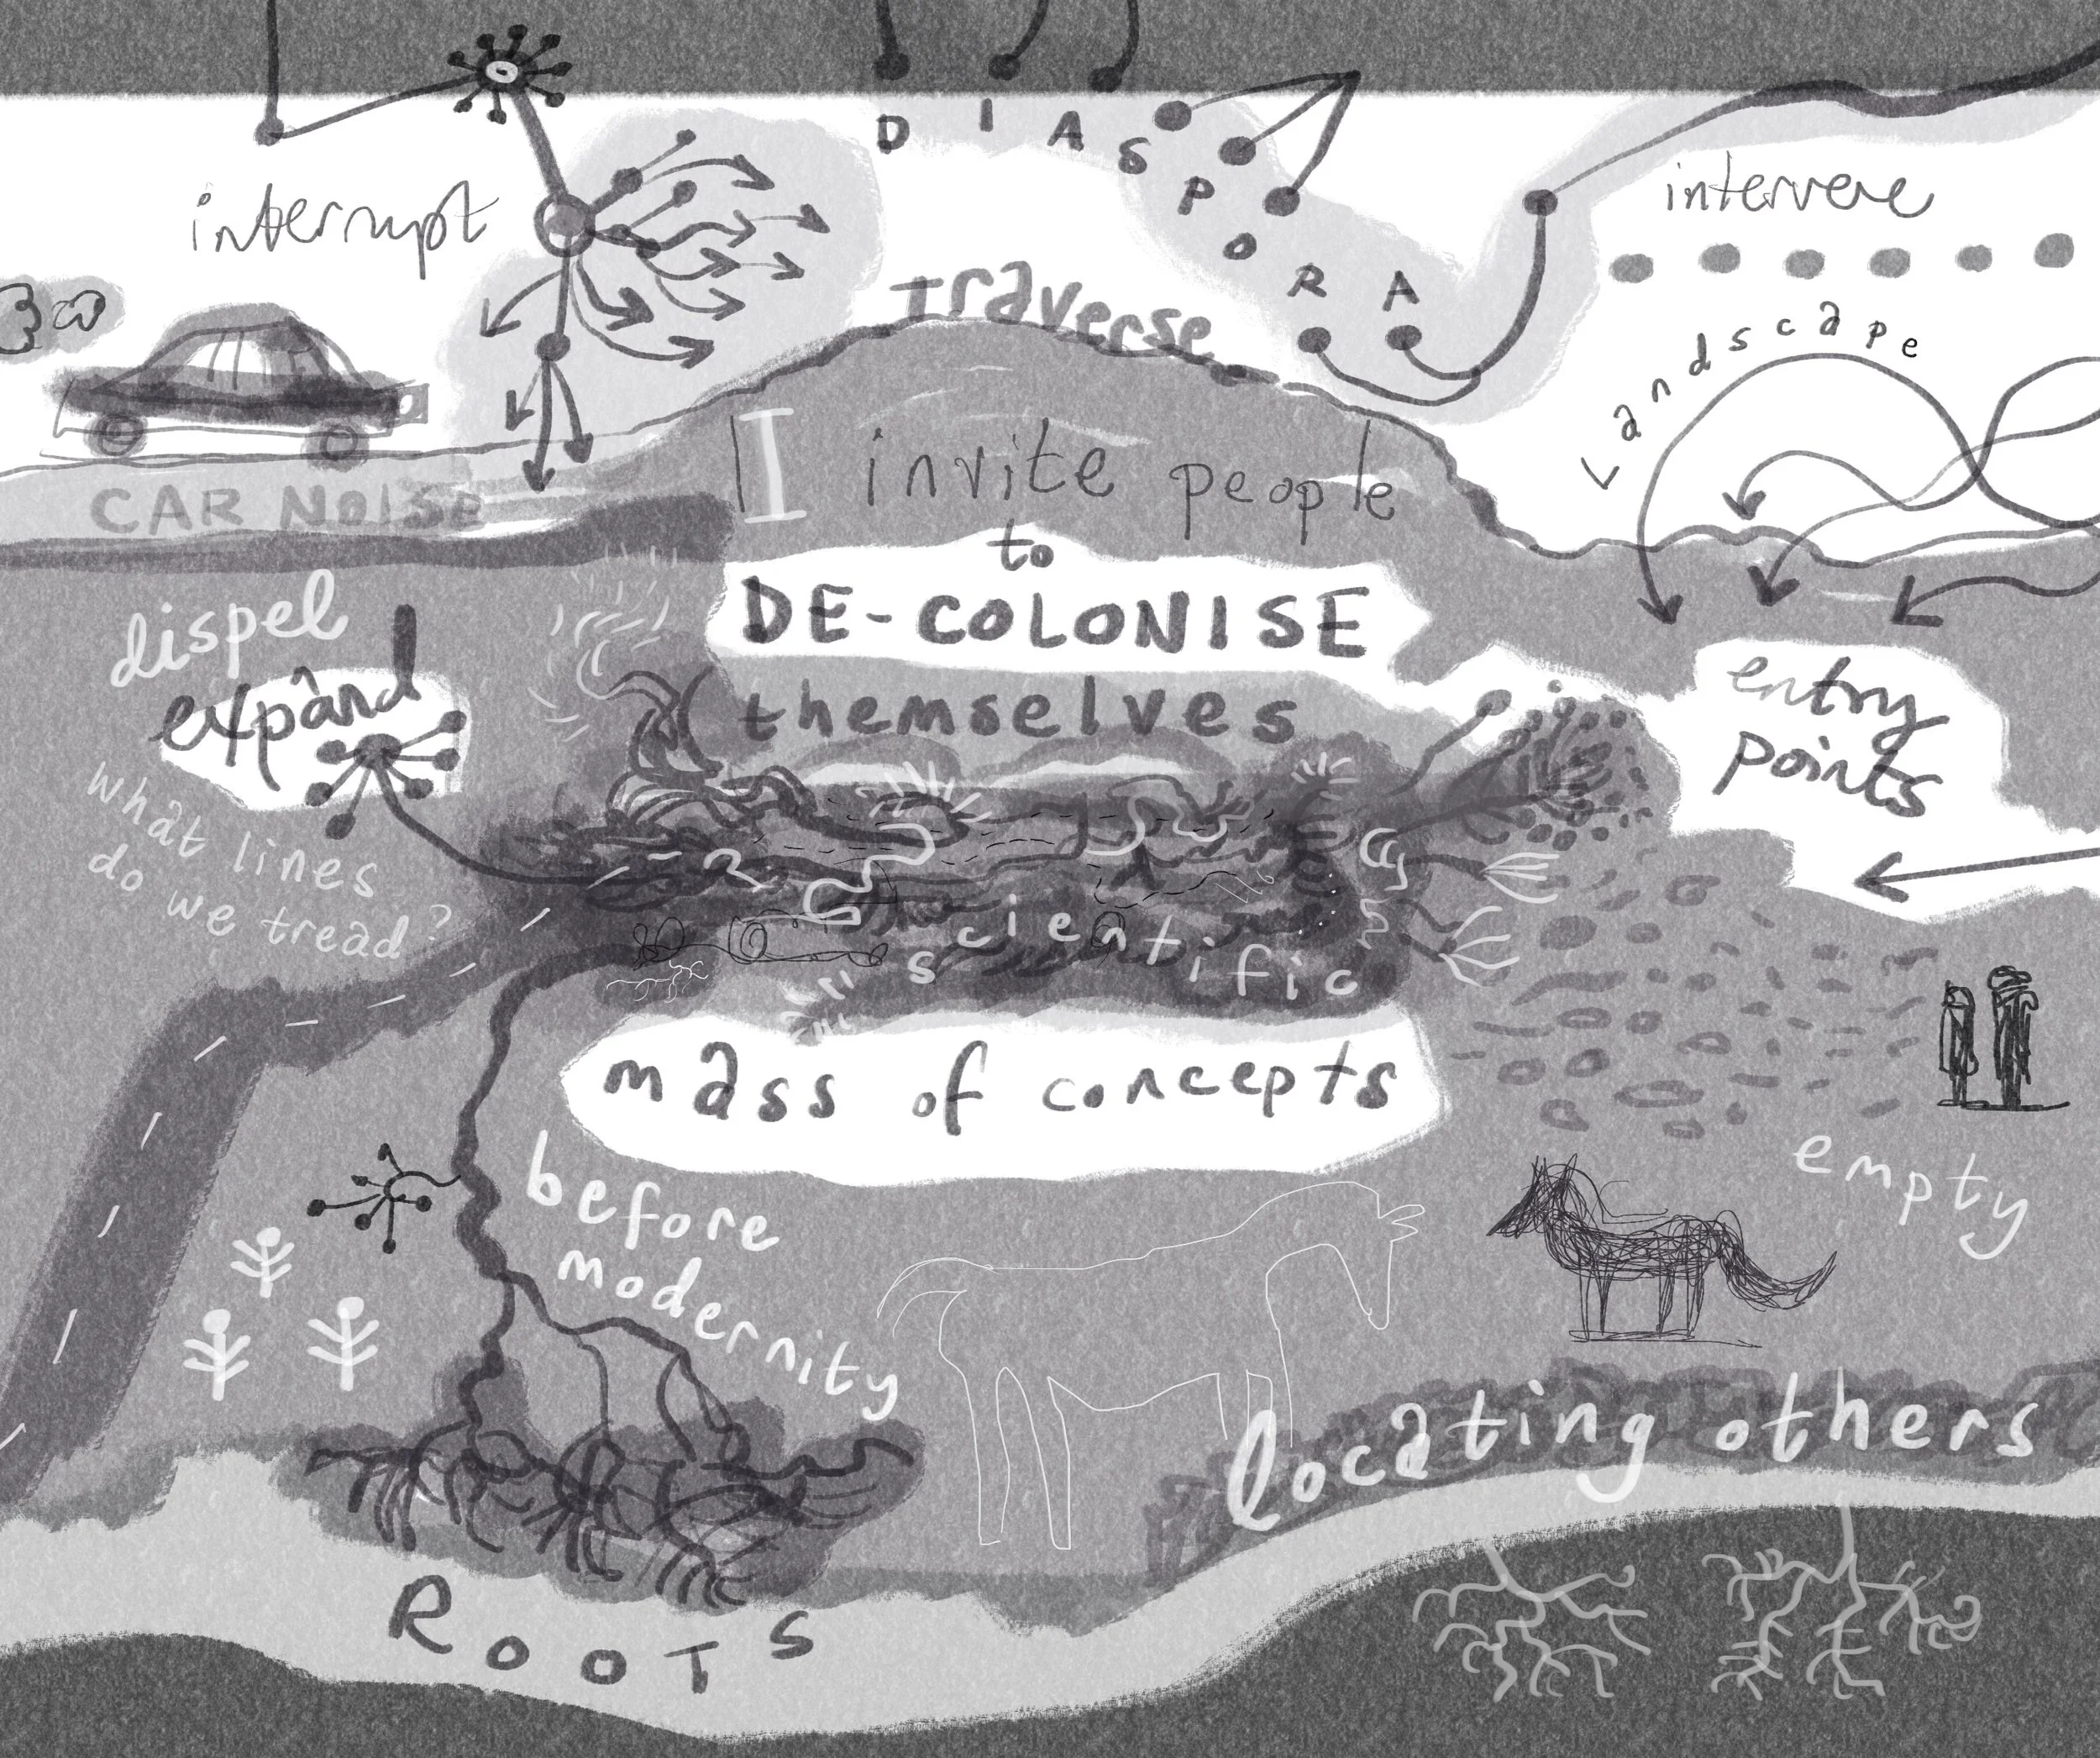 DIASPORA
interrupt
intervene
Traverse
Landscape
CAR NOISE
I invite people
to
DE-COLONISE
themselves
dispel
expand
entry
points
what lines
do we tread?
scientific
mass of concepts
before
modernity
empty
locating others
ROOTS